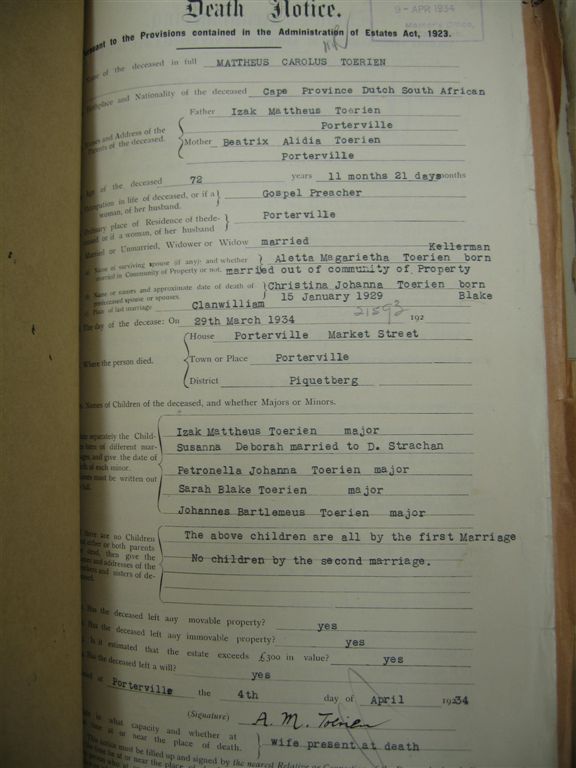 Death Notice.
9 - APR 1934
Pursuant to the Provisions contained in the Administration of Estates Act, 1923.
Name of the deceased in full MATTHEUS CAROLUS TOERIEN
Birthplace and Nationality of the deceased Cape Province Dutch South African
Names and Address of the Parents of the deceased.
Father Izak Mattheus Toerien
Porterville
Mother Beatrix Alidia Toerien
Porterville
Age of the deceased 72 years 11 months 21 days months
Occupation in life of deceased, or if a woman, of her husband. Gospel Preacher
Ordinary place of Residence of the deceased or if a woman, of her husband Porterville
Married or Unmarried, Widower or Widow married
Name of surviving spouse (if any) and whether married in Community of Property or not. Aletta Magarietha Toerien born Kellerman
married out of community of Property
Name or names and approximate date of death of predeceased spouse or spouses. Christina Johanna Toerien born Blake
15 January 1929
Place of last marriage Clanwilliam
21593
The day of the decease: On 29th March 1934 192
Where the person died.
House Porterville Market Street
Town or Place Porterville
District Piquetberg
Names of Children of the deceased, and whether Majors or Minors.
separately the Children of different
and give the date of
of each minor.
must be written out
Izak Mattheus Toerien major
Susanna Deborah married to D. Strachan
Petronella Johanna Toerien major
Sarah Blake Toerien major
Johannes Bartlemeus Toerien major
there are no Children
either or both parents
dead, then give the
names and addresses of the
and sisters of de-
The above children are all by the first Marriage
No children by the second marriage.
Has the deceased left any movable property? yes
Has the deceased left any immovable property? yes
Is it estimated that the estate exceeds £300 in value? yes
Has the deceased left a will? yes
Porterville the 4th day of April 19234
(Signature) A. M. Toerien
in what capacity and whether at
time at or near the place of death. wife present at death
must be filled up and signed by the nearest Relative or
at or near the place